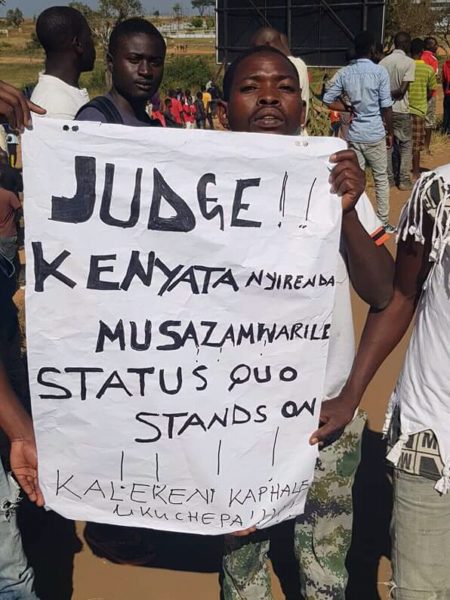 JUDGE!!
KENYATA NYIRENDA
MUSAZAMWARILE
STATUS QUO
STANDS ON
!! !!
KALEKENI KAPHALE
MKUCHEPA!!!!